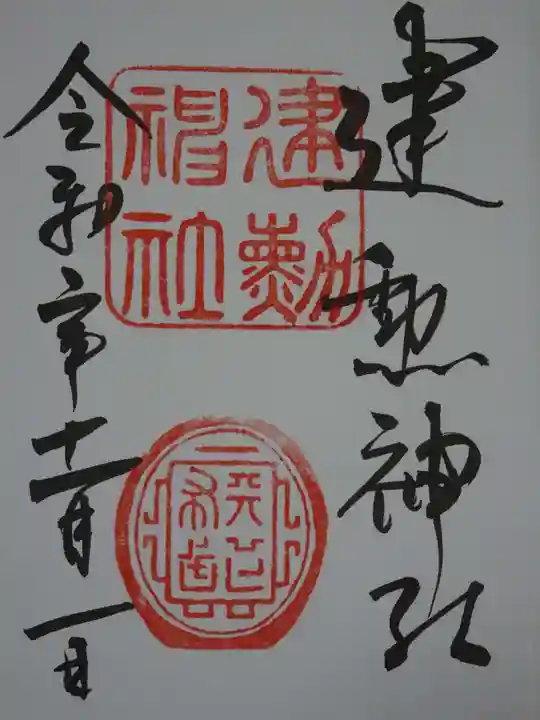 建勲神社
建勲
神社
令和年十一月一日